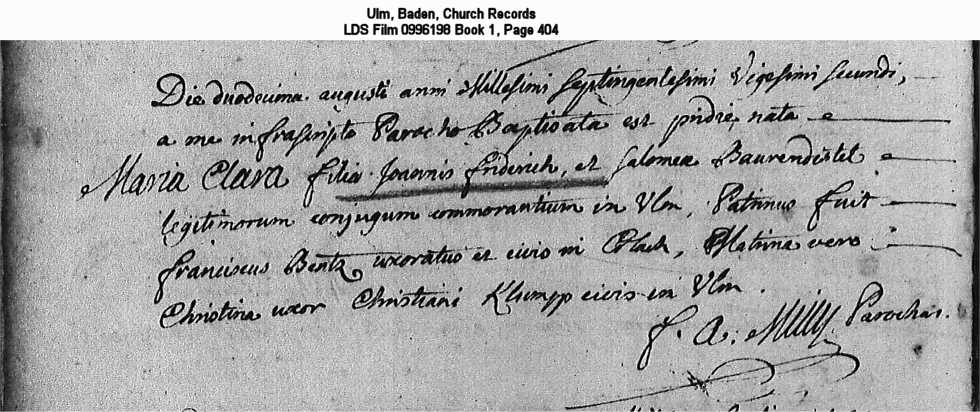 Ulm, Baden, Church Records
LDS Film 0996198 Book 1, Page 404
Die duodecima augusti anni Millesimi Septingentesimi Vigesimi secundi,
a me infrascripto Parocho Baptizata est pridie nata
Maria Clara filia Joannis friderich, et Salomea Baurendistel
legitimorum conjugum commorantium in Vlm, Patrinus fuit
franciscus Bentz uxoratus et civis in Matrina vero
Christina uxor Christiani Klumpp civis in Vlm.
f. A. Parochus.